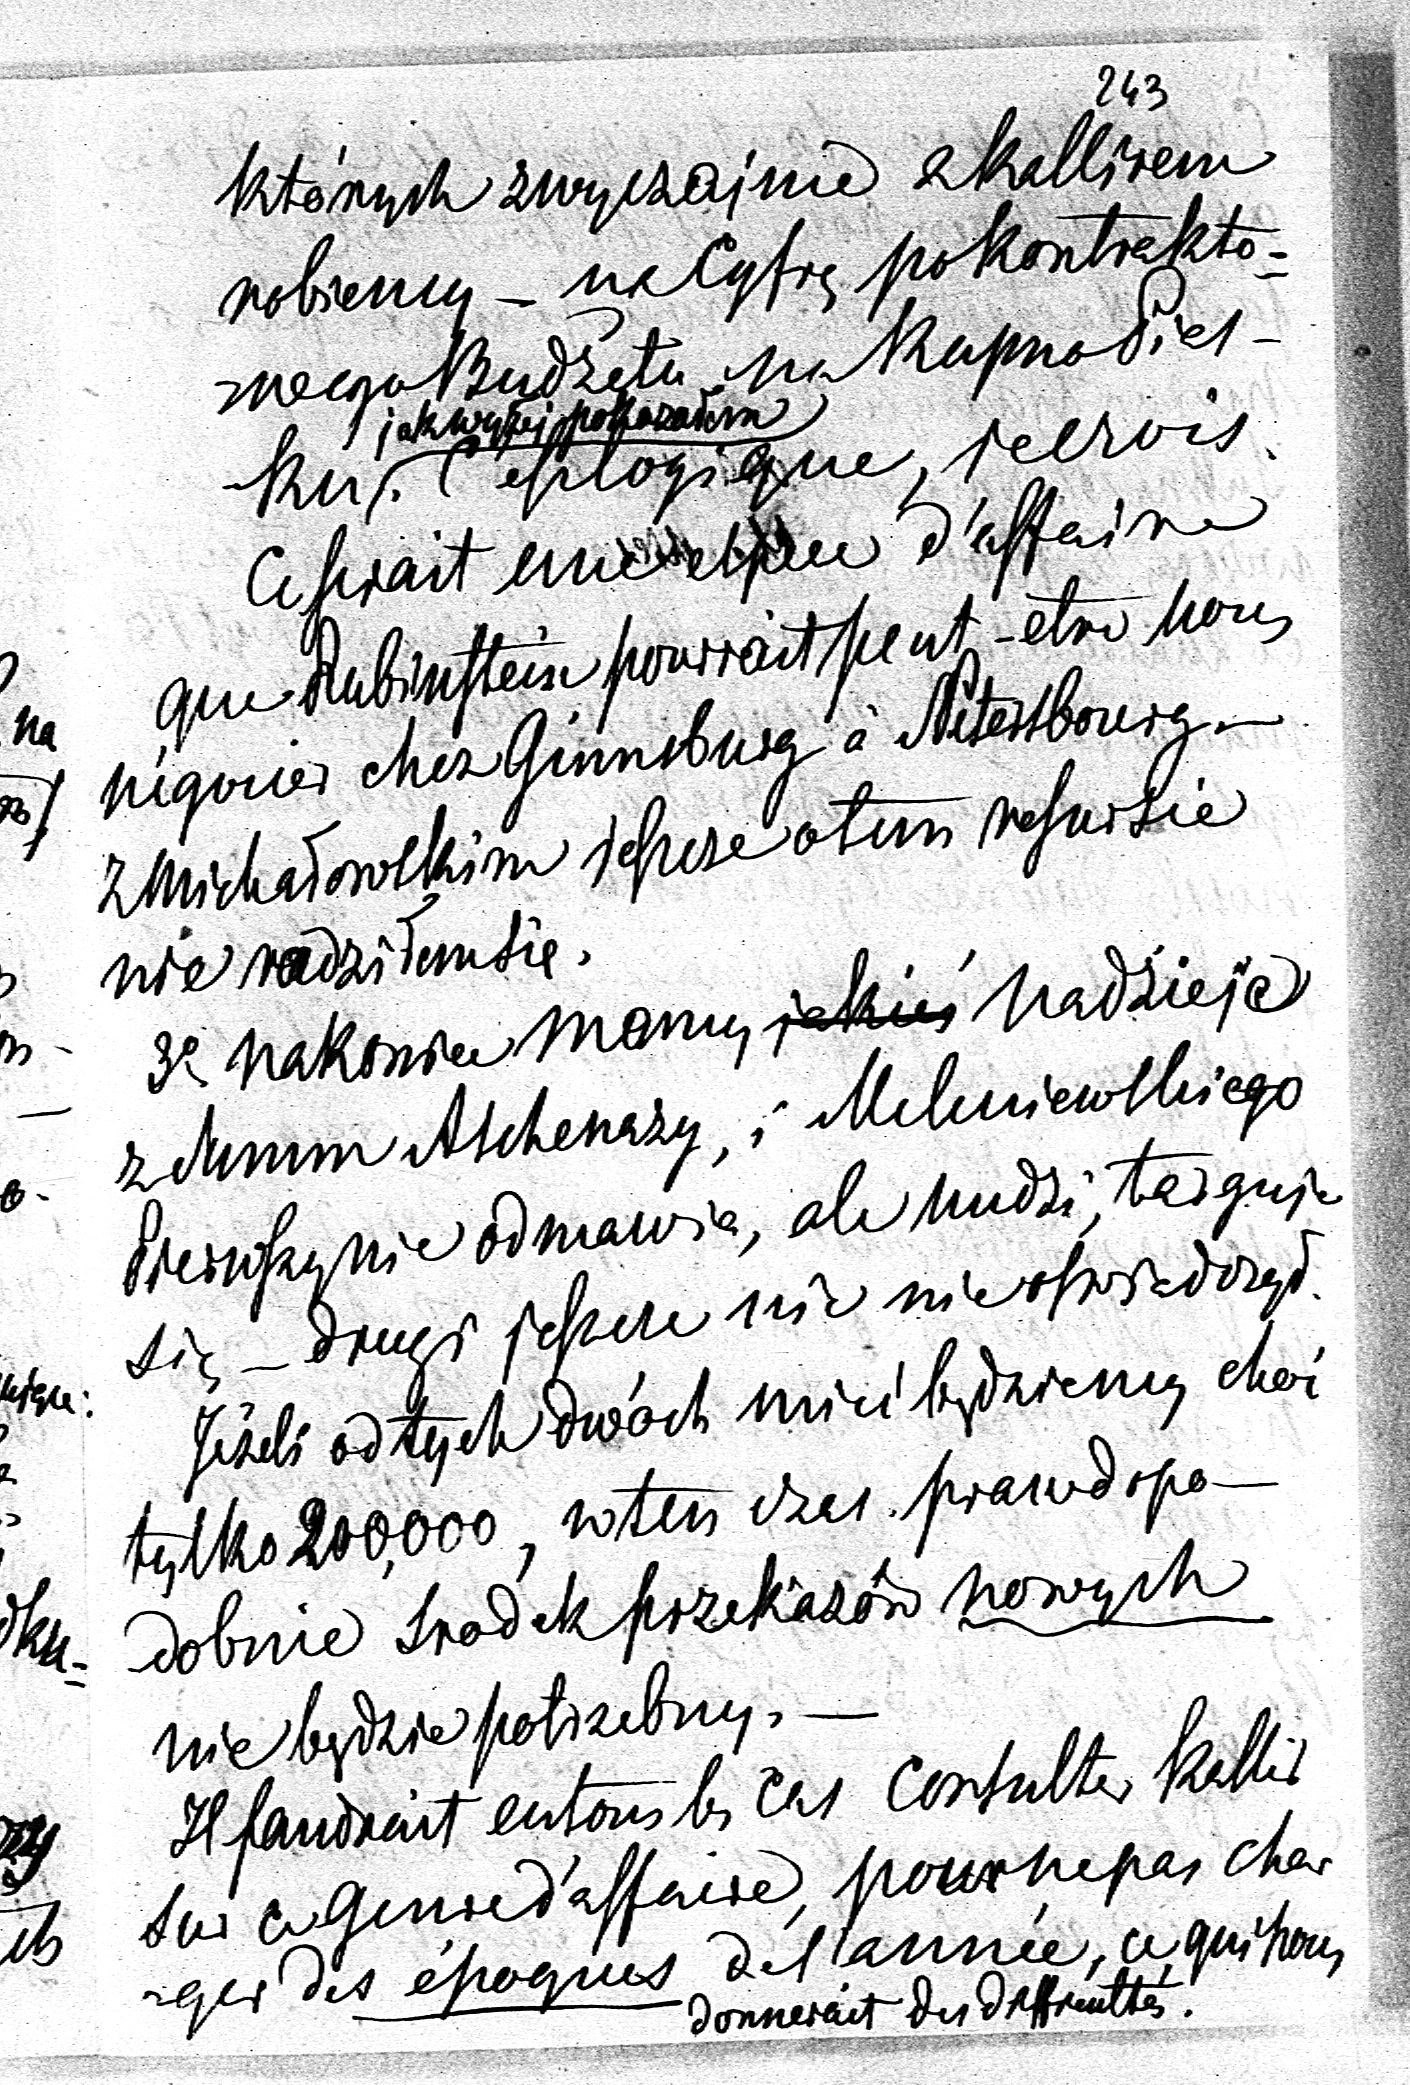 243
których zwyczajnie z Kallirem
robiemy – na Cyfrę pokontrakto=
wego Budżetu na Kupno Piel-
jak wyżej pokazałem
ku). C'est logique, je crois.
Ce serait une espece d'affaire
que Rubinstein pourrait peut-etre nous
négocier chez Ginnsburg à Petersbourg. –
z Michałowskim jeszcze o tem
nie radziłem się.
3e nakoniec mamy jakieś nadzieje
z Summ Aschenazy, i Meleniewskiego
Pierwszy nie odmawia, ale nudzi, targuje
się – drugi jeszcze nic nie oświadczył.
Jeżeli od tych dwóch mieć będziemy choć
tylko 200,000, wten czas prawdopo-
dobnie srodek przekazów nowych
nie będzie potrzebny. –
Il faudrait en tous les cas consulter Kallir
sur ce genre d'affaire, pour ne pas char
-ger des époques de l'année, ce qui nous
donnerait des difficultés.
na
dku=